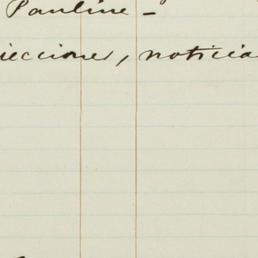 Pauline -
iecciones, noticia